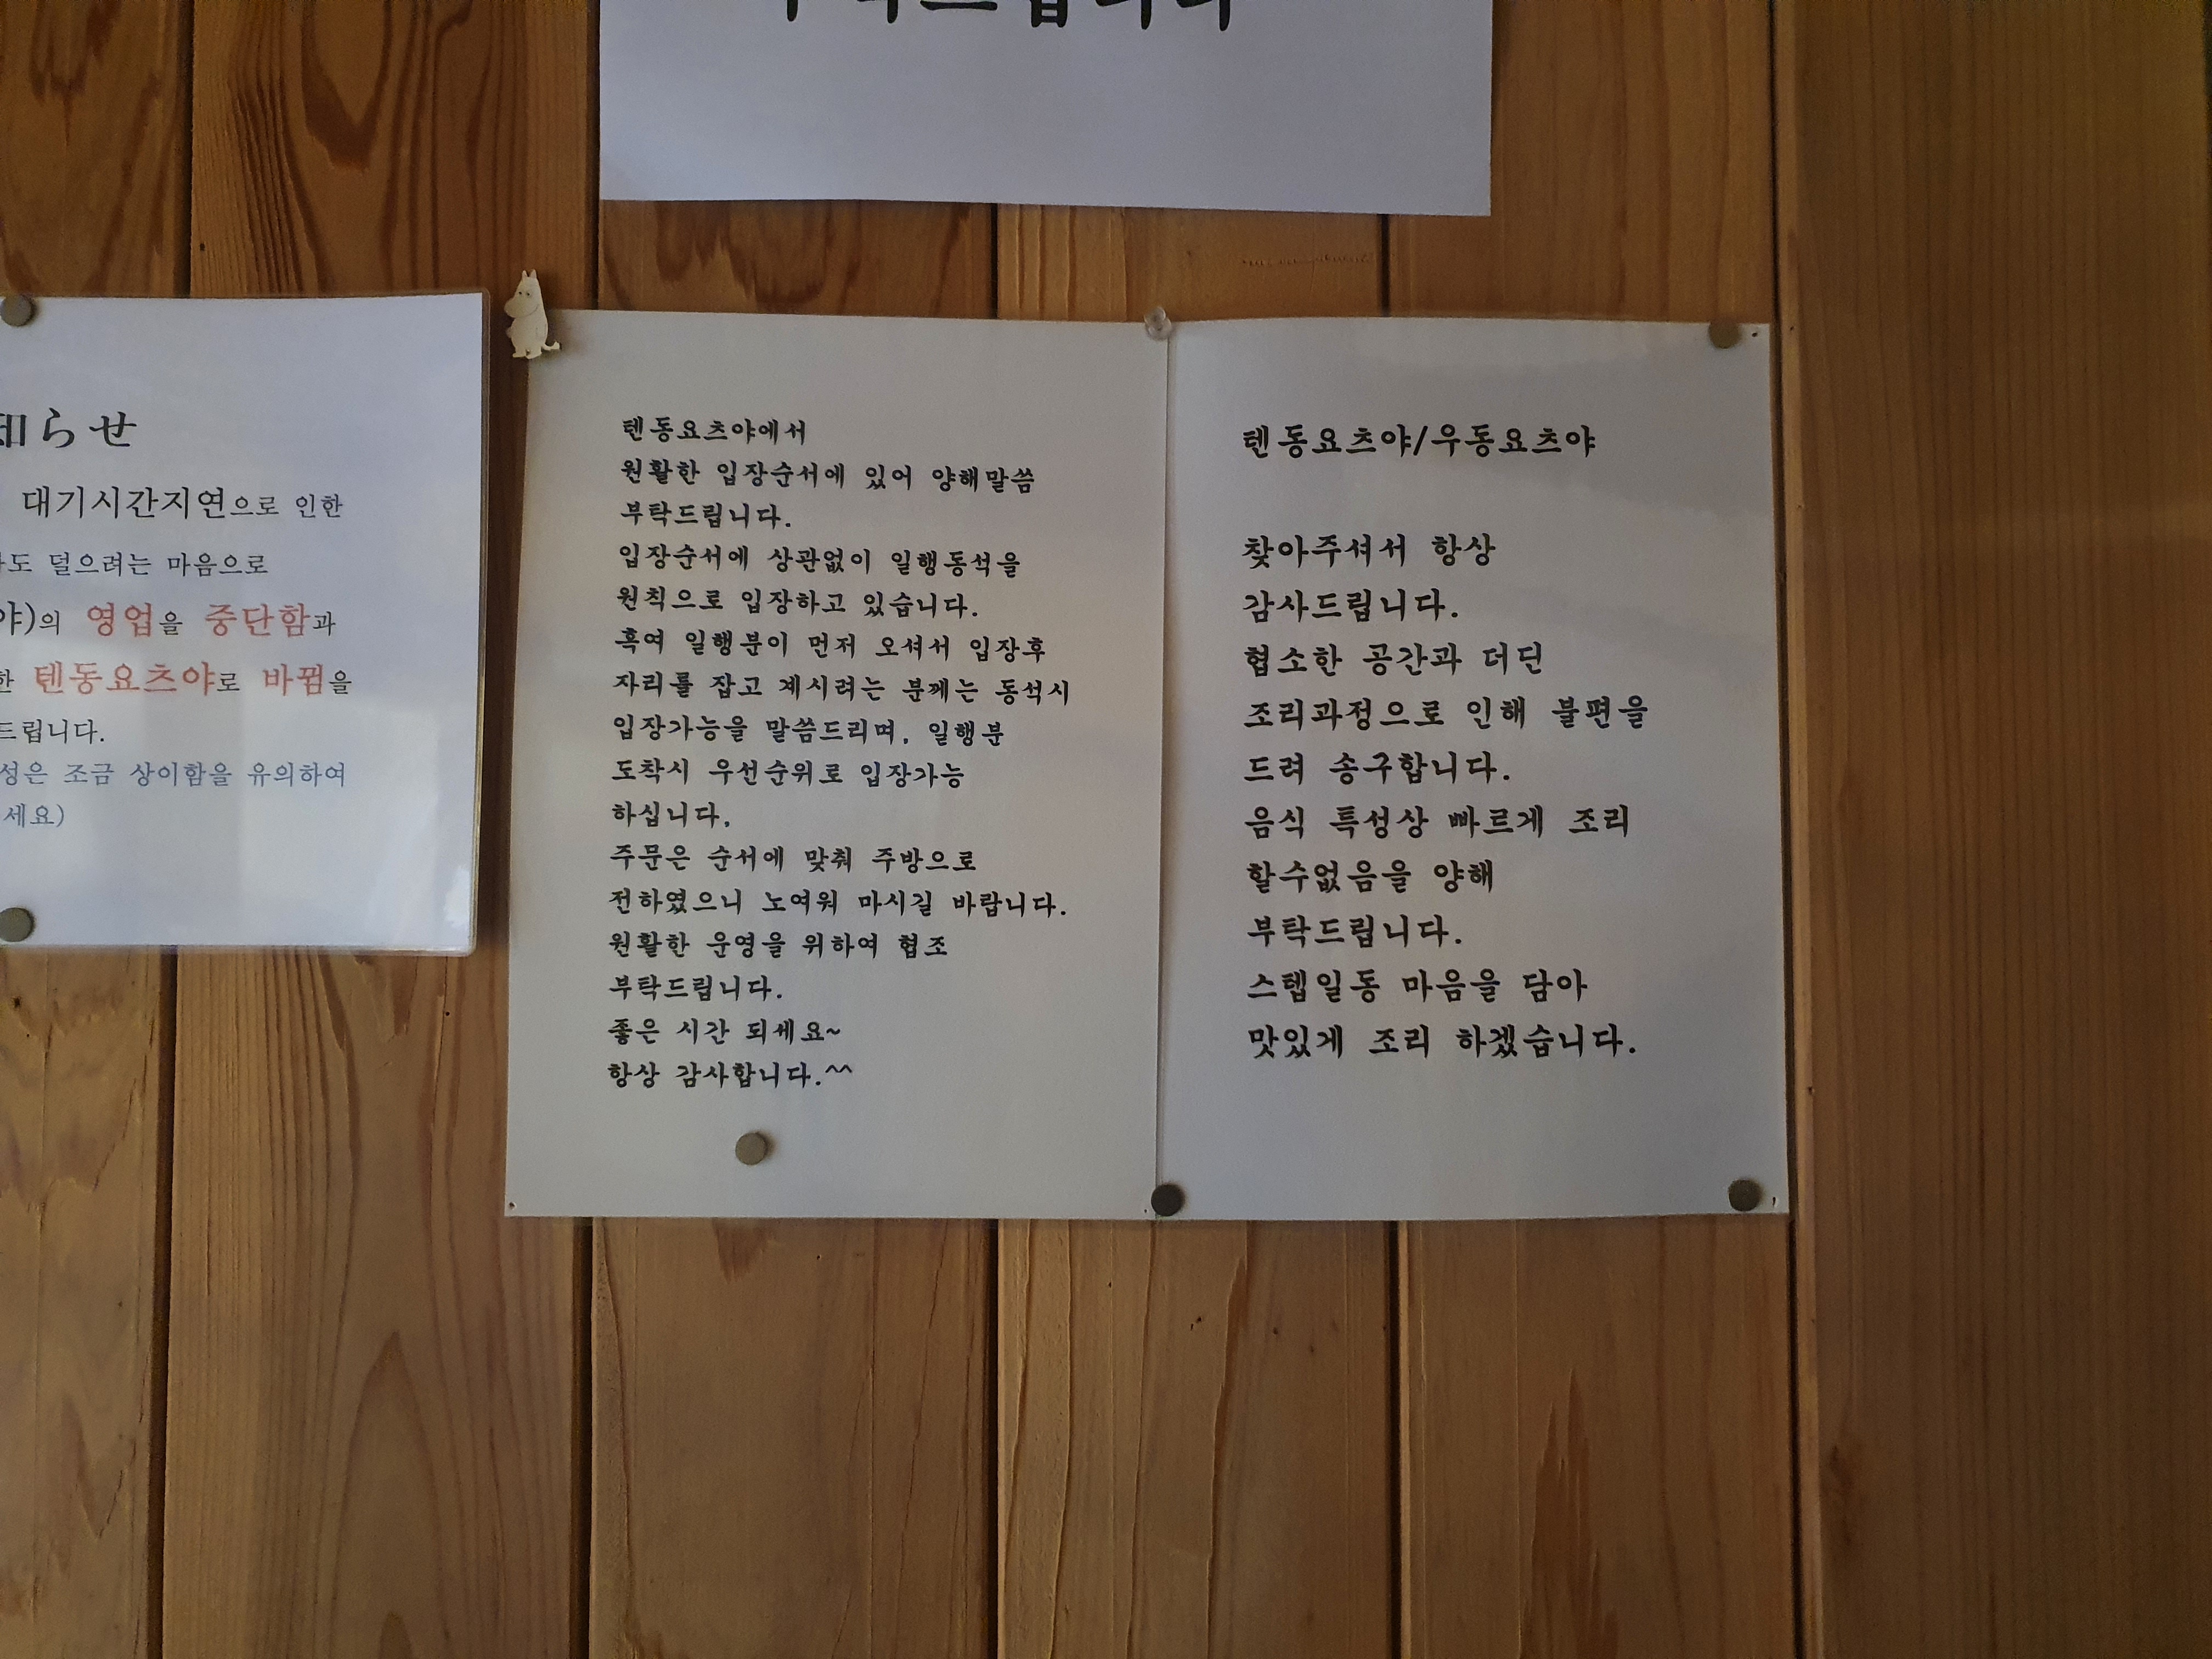 부탁드립니다
知らせ
대기시간지연으로 인한
도 덜으려는 마음으로
야)의 영업을 중단함과
한 텐동요츠야로 바뀜을
드립니다.
성은 조금 상이함을 유의하여
세요)
텐동요츠야에서
원활한 입장순서에 있어 양해말씀
부탁드립니다.
입장순서에 상관없이 일행동석을
원칙으로 입장하고 있습니다.
혹여 일행분이 먼저 오셔서 입장후
자리를 잡고 계시려는 분께는 동석시
입장가능을 말씀드리며, 일행분
도착시 우선순위로 입장가능
하십니다.
주문은 순서에 맞춰 주방으로
전하였으니 노여워 마시길 바랍니다.
원활한 운영을 위하여 협조
부탁드립니다.
좋은 시간 되세요~
항상 감사합니다.^^
텐동요츠야/우동요츠야
찾아주셔서 항상
감사드립니다.
협소한 공간과 더딘
조리과정으로 인해 불편을
드려 송구합니다.
음식 특성상 빠르게 조리
할수없음을 양해
부탁드립니다.
스텝일동 마음을 담아
맛있게 조리 하겠습니다.